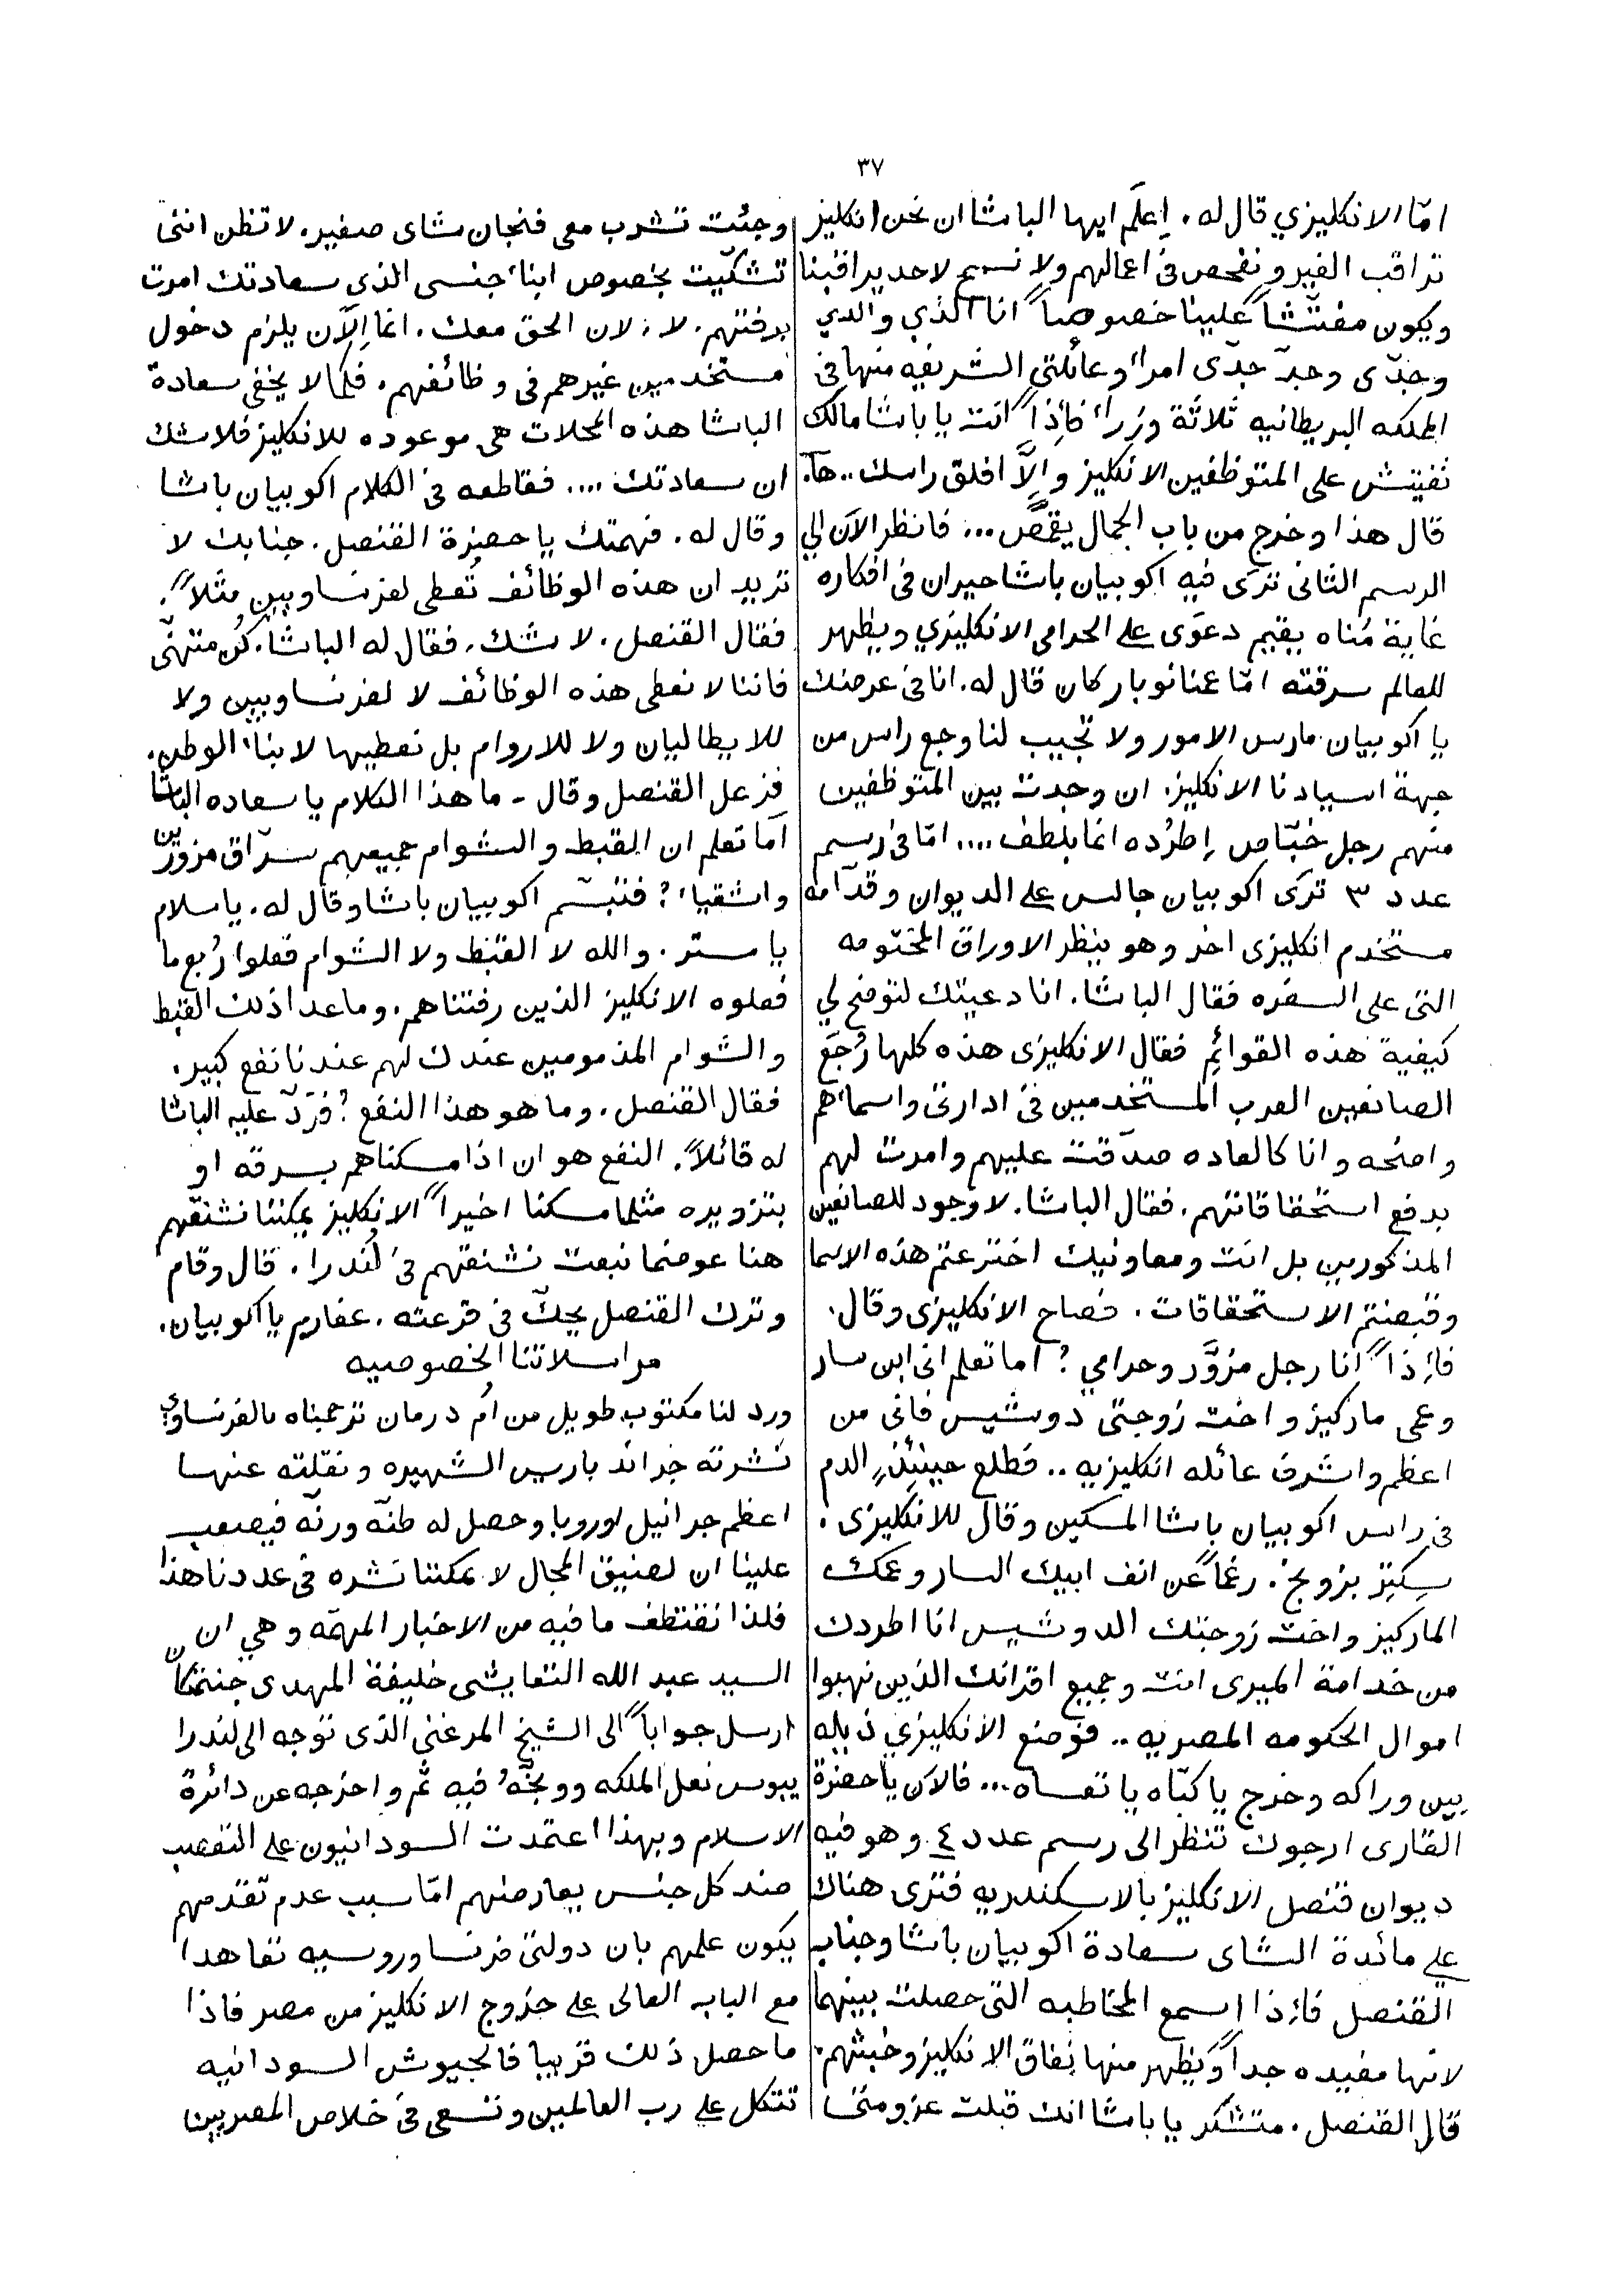 ٣٧
امّا الانكليزي قال له. اِعلَم ايها الباشا ان نحن انكليز
نراقب الغير ونفحص فى اعمالهم ولا نسمح لاحد يراقبنا
ويكون مفتّشاً علينا خصوصاً انا الذي والدي
وجدّى وجدّ جدّى امرأ وعائلتي الشريفه منها فى
المملكه البريطانيه ثلاثة وزرأ فأذاً انت يا باشا مالك
تفتيش على المتوظفين الانكليز والّا افلق راسك.. هآ.
قال هذا وخرج من باب الجمال يقمّص... فانظر الآن الي
الرسم الثانى ترَى فيه اكوبيان باشا حيران فى افكاره
غاية مُناه يقيم دعوَى على الحرامى الانكليزي ويظهر
للعالم سرقته امّا عمنا نوبار كان قال له. انا فى عرضك
يا اكوبيان مارس الامور ولا تجيب لنا وجع راس من
جهة اسيادنا الانكليز. ان وجدت بين المتوظفين
منهم رجل خبّاص اِطرُده انما بلطف.... امّا فى رسم
عدد ٣ ترَى اكوبيان جالس على الديوان وقدّامه
مستخدم انكليزى اخر وهو ينظر الاوراق المختومه
التى على السفره فقال الباشا. انا دعيتك لتوضح لي
كيفية هذه القوائِم فقال الانكليزى هذه كلها رُجَع
الصانعين العرب المستخدمين فى ادارتى واسمائهم
واضحه وانا كالعاده صدّقت عليهم وامرت لهم
بدفع استحقاقاتهم. فقال الباشا. لا وجود للصانعين
المذكورين بل انت ومعاونيك اخترعتم هذه الاسما
وقبضتم الاستحقاقات. فصاح الانكليزى وقال.
فأِذاً انا رجل مزوَّر وحرامي؟ اما تعلم انى ابن سار
وعمى ماركيز واخت زوجتى دوشيس فانى من
اعظم واشرف عائله انكليزيه.. فطلع حينئِذٍ الدم
فى راس اكوبيان باشا المسكين وقال للانكليزى.
رغماً عن انف ابيك السار وعمك
الماركيز واخت زوجتك الدوشيس انا اطردك
من خدامة الميرى انت وجميع اقرانك الذين نهبوا
اموال الحكومه المصريه.. فوضع الانكليزي ذيله
بين وراكه وخرج يا كبّاه يا تعساه... فالآن يا حضرة
القارى ارجوك تنظر الى رسم عدد ٤ وهو فيه
ديوان قنصل الانكليز بالاسكندريه فترى هناك
على مائدة الشاى سعادة اكوبيان باشا وجناب
القنصل فأِذا اسمع المخاطبه التى حصلت بينهما
لانها مفيده جداً ويظهر منها نفاق الانكليز وخبثهم.
قال القنصل. متشكر يا باشا انك قبلت عزومتى
وجئت تشرب معى فنجان شاى صغير. لا تظن اننى
تشكّيت بخصوص ابنأ جنسى الذى سعادتك امرت
برفتهم. لا. لان الحق معك. انما الآن يلزم دخول
مستخدمين غيرهم فى وظائفهم. فكما لا يخفى سعادة
الباشا هذه المحلات هى موعوده للانكليز فلا شك
ان سعادتك.... فقاطعه فى الكلام اكوبيان باشا
وقال له. فهمتك يا حضرة القنصل. جنابك لا
تريد ان هذه الوظائف تُعطى لفرنساويين مثلاً.
فقال القنصل. لا شك. فقال له الباشا. كُن متهنّى
فاننا لا نعطى هذه الوظائف لا لفرنساويين ولا
للايطاليان ولا للاروام بل نعطيها لابنأ الوطن.
فزعل القنصل وقال - ما هذا الكلام يا سعاده الباشا
اَما تعلم ان القبط والشوام جميعهم سرّاق مزوّرين
واشقيأ؟ فتبسّم اكوبيان باشا وقال له. يا سلام
يا ستر. والله لا القبط ولا الشوام فعلوا رُبع ما
فعلوه الانكليز الذين رفتناهم. وما عدا ذلك القبط
والشوام المذمومين عندك لهم عندنا نفع كبير.
فقال القنصل. وما هو هذا النفع؟ فرَدّ عليه الباشا
له قائلاً. النفع هو ان اذا مسكناهم بسرقه او
بتزويره مثلما مسكنا اخيراً الانكليز يمكننا نشنقهم
هنا عوضما نبعت نشنقهم فى لُندرا. قال وقام
وترك القنصل يحكّ فى قرعته. عفارم يا اكوبيان.
مراسلاتنا الخصوصيه
ورد لنا مكتوب طويل من اُم درمان ترجمناه بالفرنساوي
نشرته جرائد باريس الشهيره ونقلته عنها
اعظم جرانيل اوروبا وحصل له طنّه ورنّه فيصعب
علينا ان لضيق المجال لا يمكننا نشره فى عددنا هذا
فلذا نقتطف ما فيه من الاخبار المهمّه وهي ان
السيد عبد الله التعايشى خليفة المهدى جنتمكان
ارسل جواباً الى الشيخ المرغنى الذى توجه الى لندرا
يبوس نعل الملكه ووبخّهُ فيه ثم واخرجه عن دائرة
الاسلام وبهذا اعتمدت السودانيون على التعصب
ضد كل جنس يعارضهم امّا سبب عدم تقدمهم
يكون علمهم بان دولتى فرنسا وروسيه تعاهدا
مع الباب العالى على خروج الانكليز من مصر فاذا
ما حصل ذلك قريبا فالجيوش السودانيه
تتكل على رب العالمين وتسعى فى خلاص المصريين